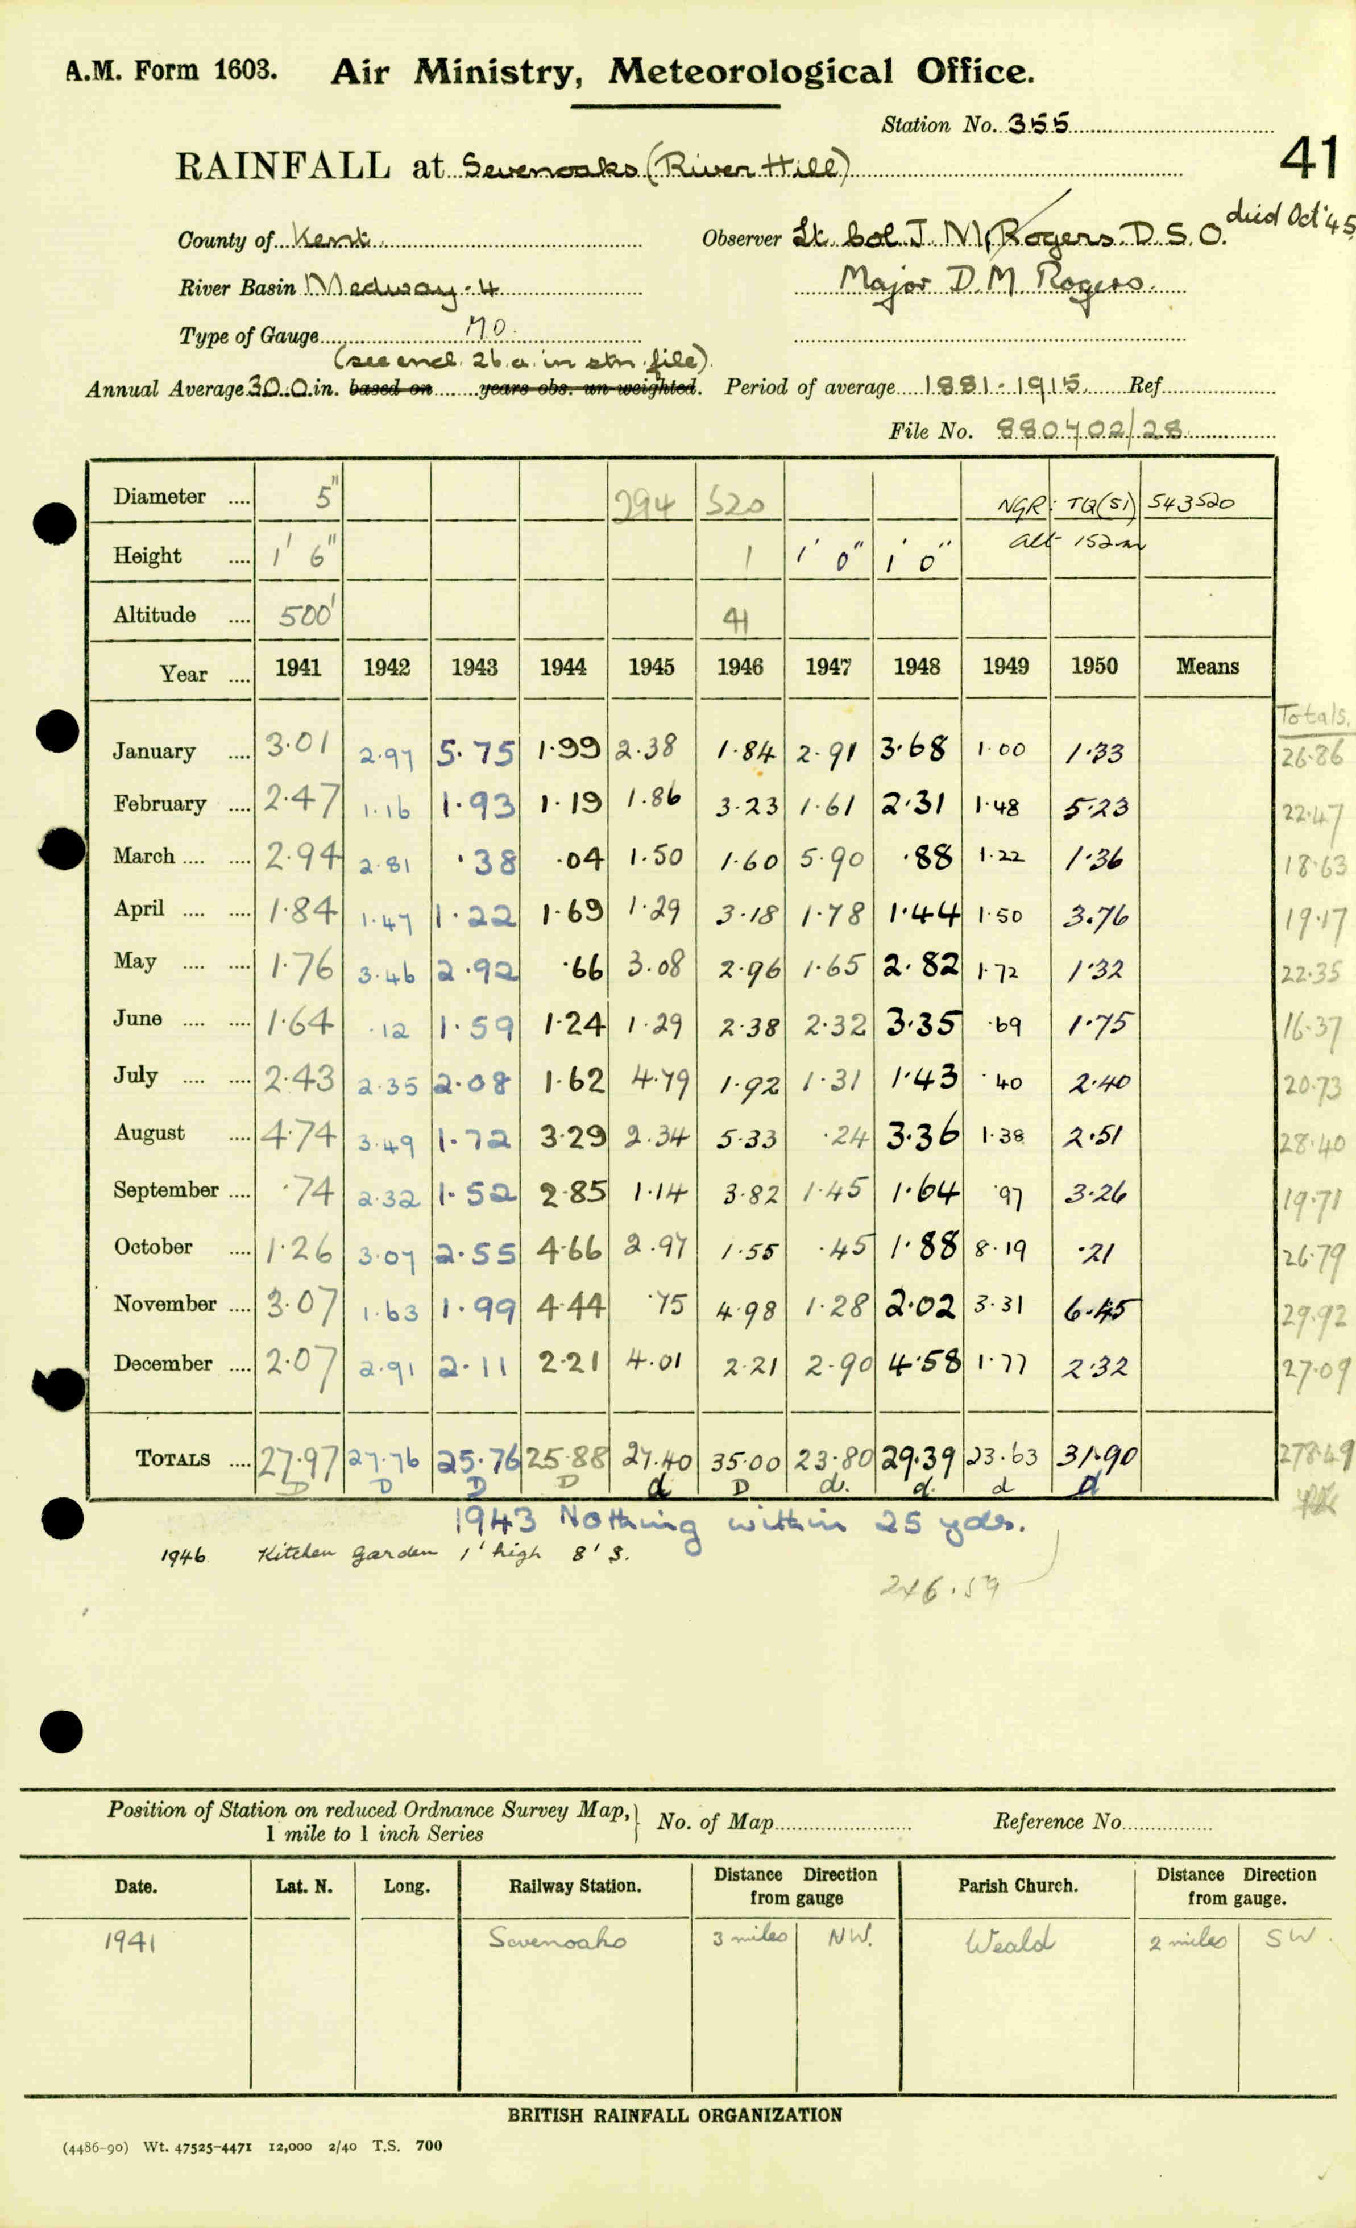 A.M. Form 1603. Air Ministry, Meteorological Office.
Station No. 355
41
RAINFALL at Sevenoaks (River Hill)
County of Kent Observer Lt. Col. J. M. Rogers. D.S.O. died Oct '45
River Basin Medway - 4 Major D. M. Rogers.
Type of Gauge MO.
(see encl. 26.a. in stn. file)
Annual Average 30.0 in. based on years obs. un-weighted. Period of average 1881-1915. Ref
File No. 880402/28
Diameter .... 5" 294 520 NGR: TQ(51) 543520
Height .... 1' 6" 1 1' 0" 1' 0" alt 152m
Altitude .... 500' 41
Year .... 1941 1942 1943 1944 1945 1946 1947 1948 1949 1950 Means
Totals.
January .... 3.01 2.97 5.75 1.99 2.38 1.84 2.91 3.68 1.00 1.33 26.86
February .... 2.47 1.16 1.93 1.19 1.86 3.23 1.61 2.31 1.48 5.23 22.47
March .... .... 2.94 2.81 .38 .04 1.50 1.60 5.90 .88 1.22 1.36 18.63
April .... .... 1.84 1.47 1.22 1.69 1.29 3.18 1.78 1.44 1.50 3.76 19.17
May .... .... 1.76 3.46 2.92 .66 3.08 2.96 1.65 2.82 1.72 1.32 22.35
June .... .... 1.64 .12 1.59 1.24 1.29 2.38 2.32 3.35 .69 1.75 16.37
July .... .... 2.43 2.35 2.08 1.62 4.79 1.92 1.31 1.43 .40 2.40 20.73
August .... 4.74 3.49 1.72 3.29 2.34 5.33 .24 3.36 1.38 2.51 28.40
September .... .74 2.32 1.52 2.85 1.14 3.82 1.45 1.64 .97 3.26 19.71
October .... 1.26 3.07 2.55 4.66 2.97 1.55 .45 1.88 8.19 .21 26.79
November .... 3.07 1.63 1.99 4.44 .75 4.98 1.28 2.02 3.31 6.45 29.92
December .... 2.07 2.91 2.11 2.21 4.01 2.21 2.90 4.58 1.77 2.32 27.09
TOTALS .... 27.97 27.76 25.76 25.88 27.40 35.00 23.80 29.39 23.63 31.90 278.49
D D D D d D d. d. d d
1943 Nothing within 25 yds.
1946 Kitchen garden 1' high 8' S.
246.59
Position of Station on reduced Ordnance Survey Map, 1 mile to 1 inch Series } No. of Map Reference No.
Date. Lat. N. Long. Railway Station. Distance Direction from gauge Parish Church. Distance Direction from gauge.
1941 Sevenoaks 3 miles NW. Weald 2 miles SW.
BRITISH RAINFALL ORGANIZATION
(4486-90) Wt. 47525-4471 12,000 2/40 T.S. 700